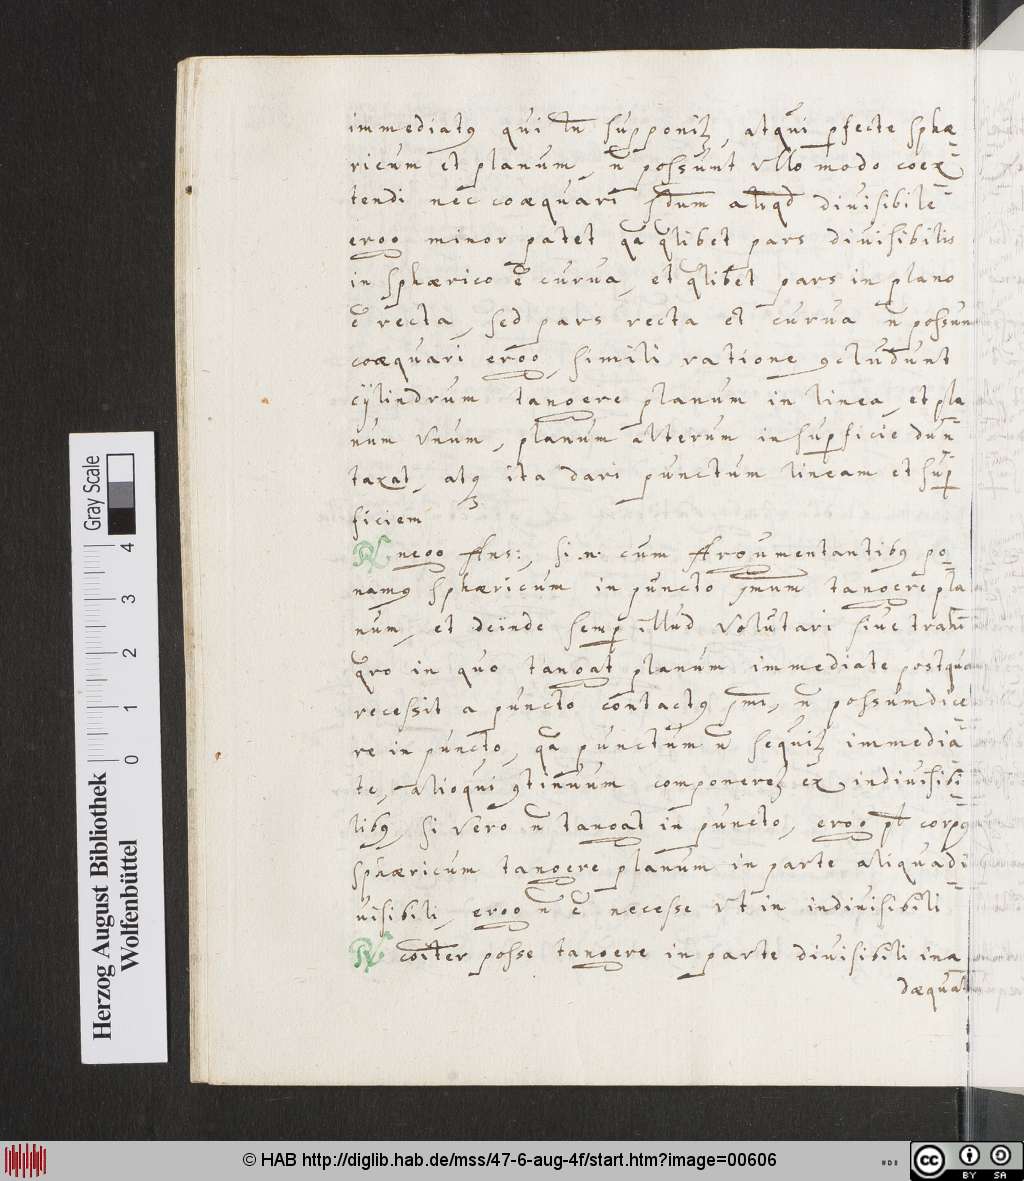 immediatꝰ qui tn̄ supponiꝫ, atqui ꝑfecte sphæ-
ricum et planum, n̄ possunt vllo modo coex-
tendi nec coæquari sc̄dum aliqd̄ diuisibile
ergo minor patet qa qlibet pars diuisibilis
in sphærico ē curua, et qlibet pars in plano
ē recta, sed pars recta et curua n̄ possun
coæquari ergo, simili ratione ꝯcludunt
cÿlindrum tangere planum in linea, et pla
num vnum, planum alterum in suꝑficie dun-
taxat, atqꝫ ita dari punctum lineam et suꝑ-
ficiem
℞ nego Ans:, si .n. cum Argumentantibꝰ po-
namꝰ sphæricum in puncto pmum tangere pla
num, et deinde semꝑ illud volutari siue trahi
qro in quo tangat planum immediate postqua
recessit a puncto contactꝰ pmi, n̄ possum dice-
re in puncto, qa punctum n̄ sequiꝫ immedia-
te, alioqui ꝯtinuum componereꝫ ex indiuisibi-
libꝰ, si vero n̄ tangat in puncto, ergo pt̄ corpꝰ
sphæricum tangere planum in parte aliqua di-
uisibili, ergo n̄ ē necesse vt in indiuisibili
℞ coīter posse tangere in parte diuisibili ina
dæquat
Gray Scale
4
3
2
1
0
Herzog August Bibliothek
Wolfenbüttel
© HAB http://diglib.hab.de/mss/47-6-aug-4f/start.htm?image=00606
cc BY SA